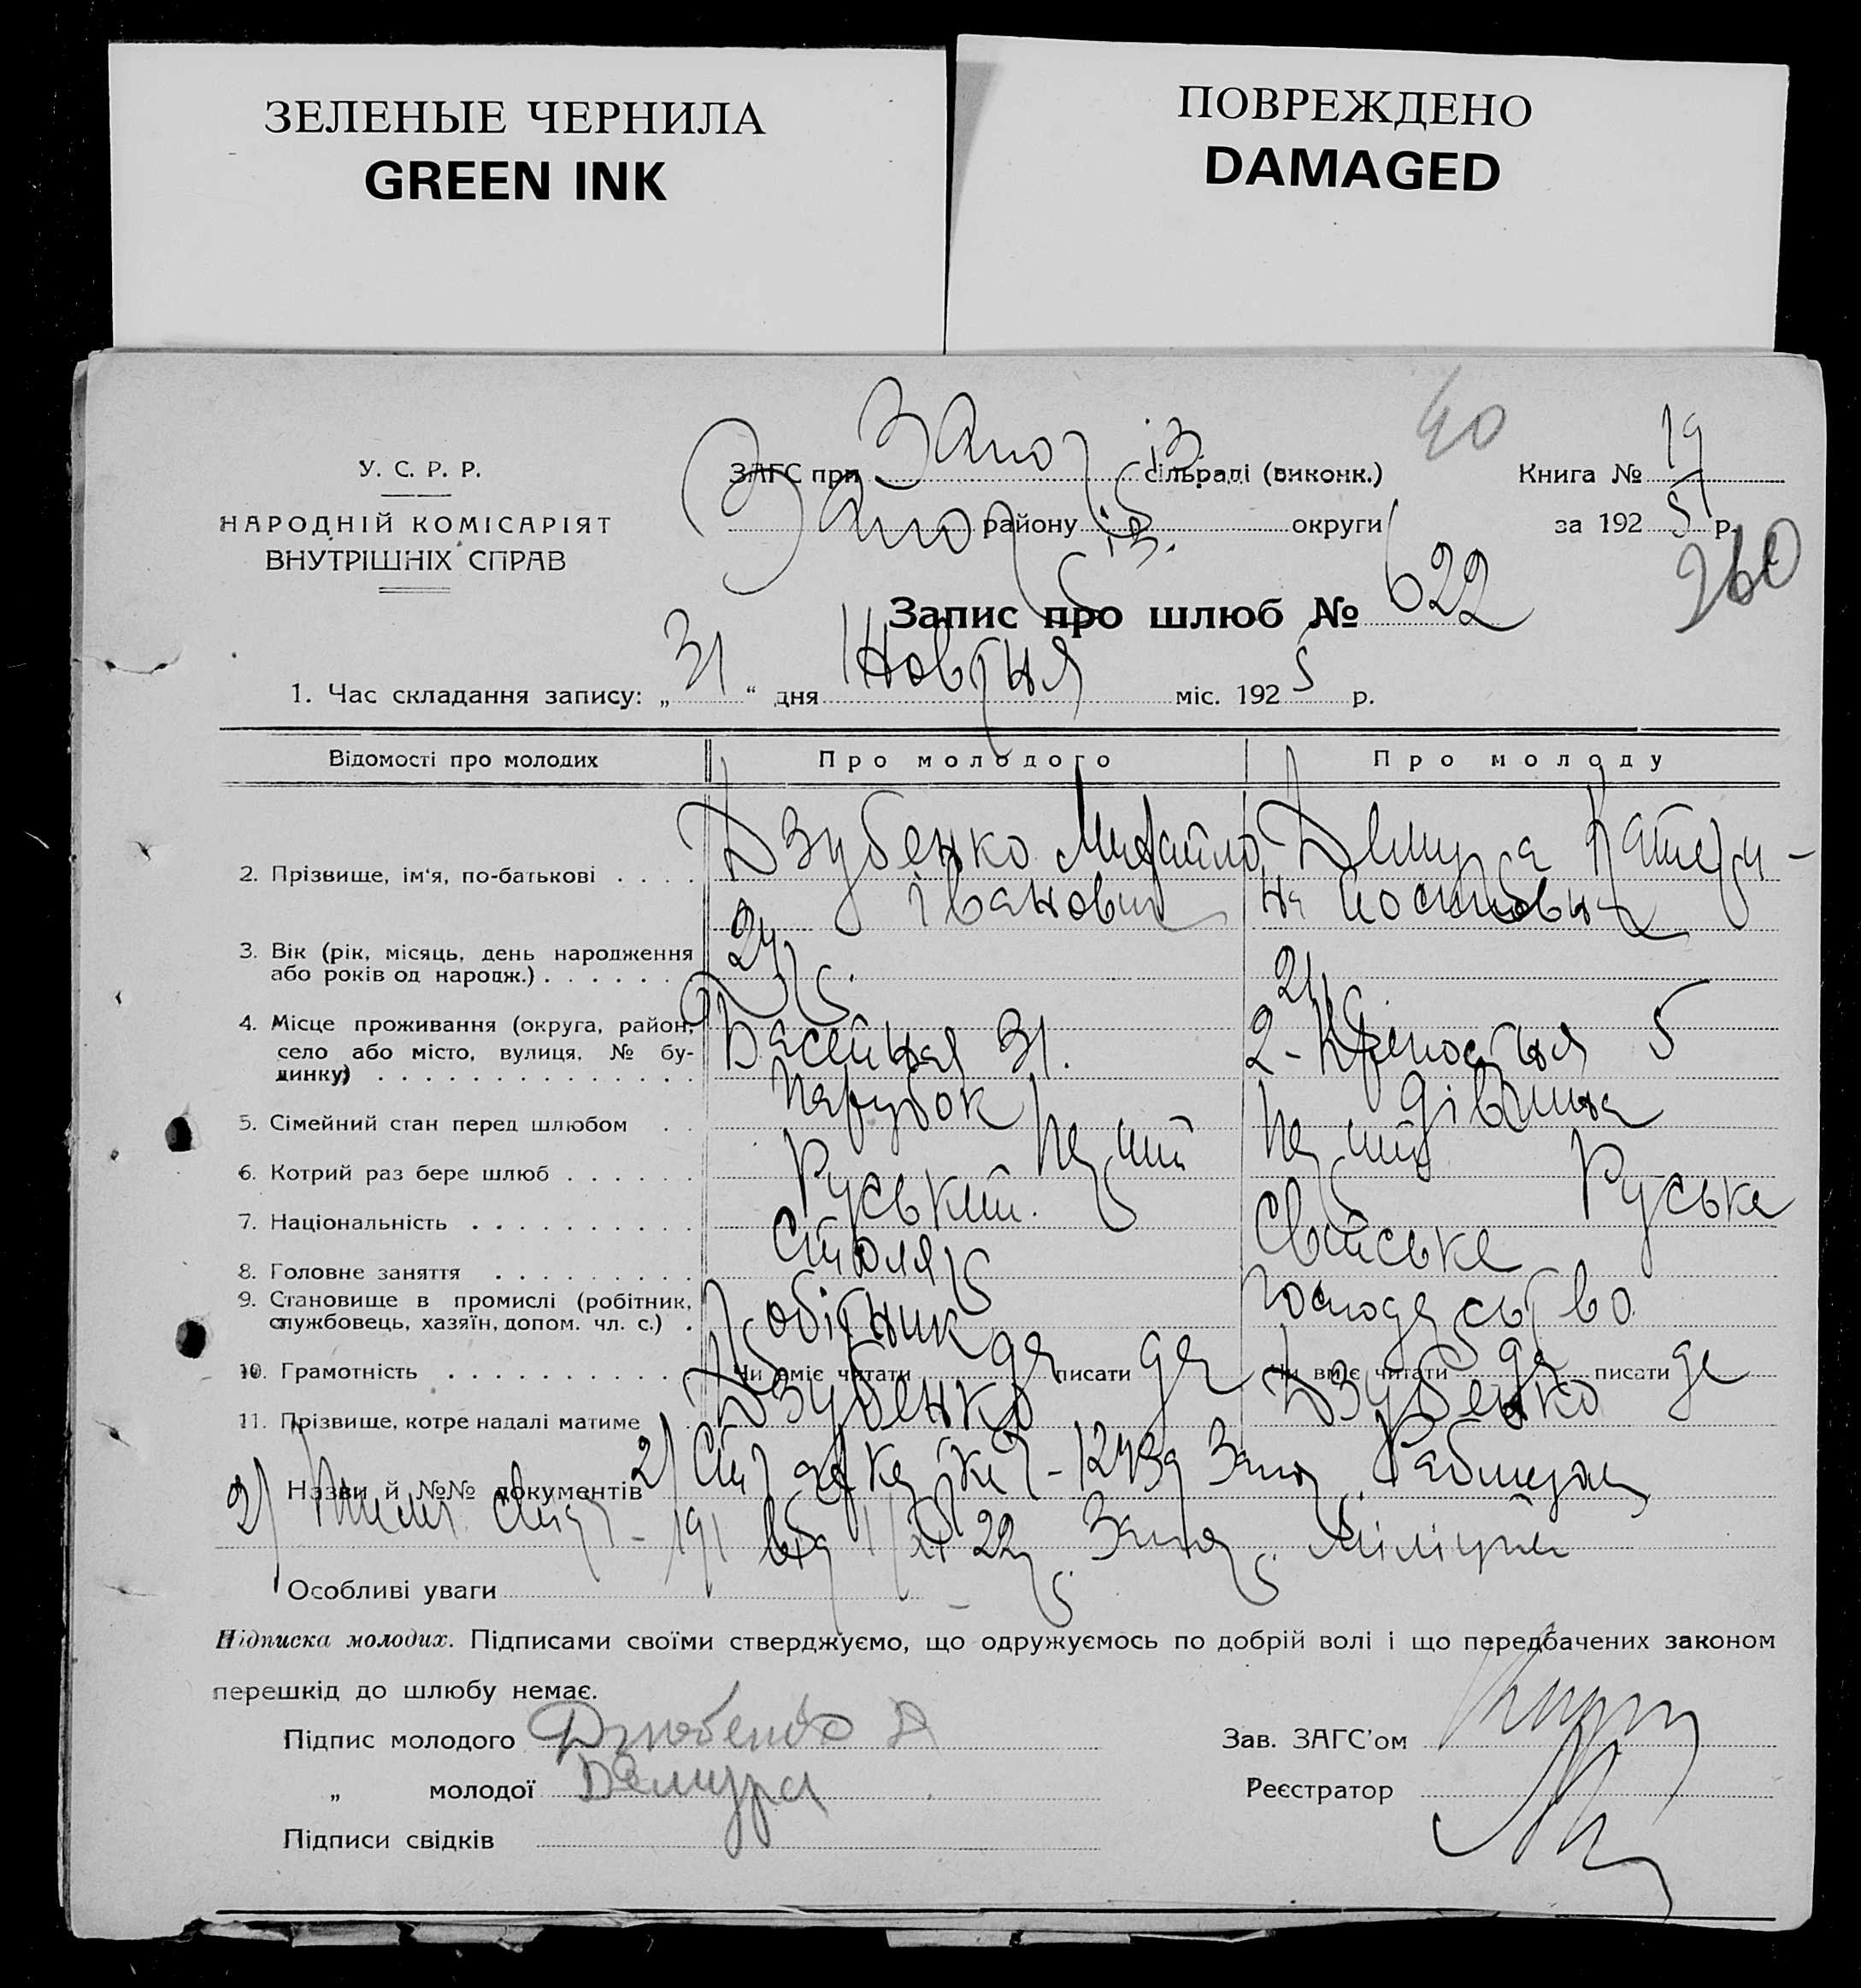 ЗЕЛЕНЫЕ ЧЕРНИЛА
GREEN INK
ПОВРЕЖДЕНО
DAMAGED
40
У. С. Р. Р.
НАРОДНІЙ КОМІСАРІЯТ
ВНУТРІШНІХ СПРАВ
ЗАГС при Запоріз сільраді (виконк.)
Книга № 19
Запоріз. району округи
за 192 5 р.
260
Запис про шлюб № 622
1. Час складання запису: „ 31 “ дня Жовтня міс. 192 5 р.
Відомості про молодих Про молодого Про молоду
2. Прізвище, ім'я, по-батькові Дзубенко Михайло Іванович Демура Катери-на
3. Вік (рік, місяць, день народження
або років од народж.) 24 р. 21 р.
4. Місце проживання (округа, район,
село або місто, вулиця, № бу-
динку) Басейная 31. 2-Крепостня 5
5. Сімейний стан перед шлюбом парубок дівчина
6. Котрий раз бере шлюб перший перший
7. Національність Руський. Руська
8. Головне заняття Столяр Свійське
9. Становище в промислі (робітник,
службовець, хазяїн, допом. чл. с.) робітник господарство
10. Грамотність Чи вміє читати да писати да Чи вміє читати да писати да
11. Прізвище, котре надалі матиме Дзубенко Дзубенко
Назви й №№ документів
191 від 22 р. Запор. Міліции
Особливі уваги
Підписка молодих. Підписами своїми стверджуємо, що одружуємось по добрій волі і що передбачених законом
перешкід до шлюбу немає.
Підпис молодого Дзюбенко
Зав. ЗАГС'ом
„ молодої Демура
Реєстратор
Підписи свідків